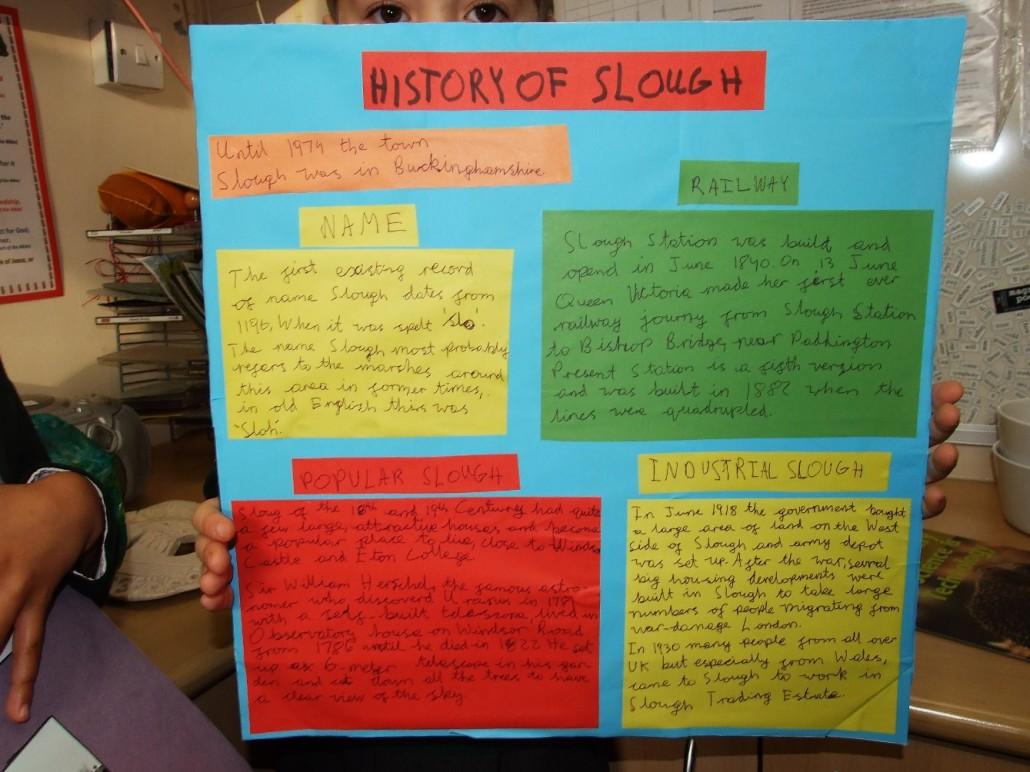 HISTORY OF SLOUGH
Until 1974 the town
Slough was in Buckinghamshire
NAME
The first existing record
of name Slough dates from
1196, When it was spelt 'slo'.
The name Slough most probably
refers to the marshes around
this area in former times,
in old English this was
'Sloh'.
RAILWAY
Slough Station was build and
opend in June 1840. On 13 June
Queen Victoria made her first ever
railway journey from Slough Station
to Bishop Bridge, near Paddington
Present Station is a fifth version
and was built in 1882 when the
lines were quadrupled.
POPULAR SLOUGH
Sloug of the 18th and 19th Century had quite
a few large, attractive houses and become
a popular place to live, close to Winds
Castle and Eton College.
Sir William Herschel, the famous astro
nomer who discoverd Uranus in 1781
with a self-built telescope, lived in
Observatory house on Windsor Road
from 1786 until he died in 1822. He set
up 6-meter telescope in his gar
den and cut down all the trees to have
a clear view of the sky.
INDUSTRIAL SLOUGH
In June 1918 the government bought
a large area of land on the West
side of Slough and army depot
was set up. After the war, several
big housing developments were
built in Slough to take large
numbers of people migrating from
war-damage London.
In 1930 many people from all over
UK but especially from Wales,
came to Slough to work in
Slough Trading Estate.